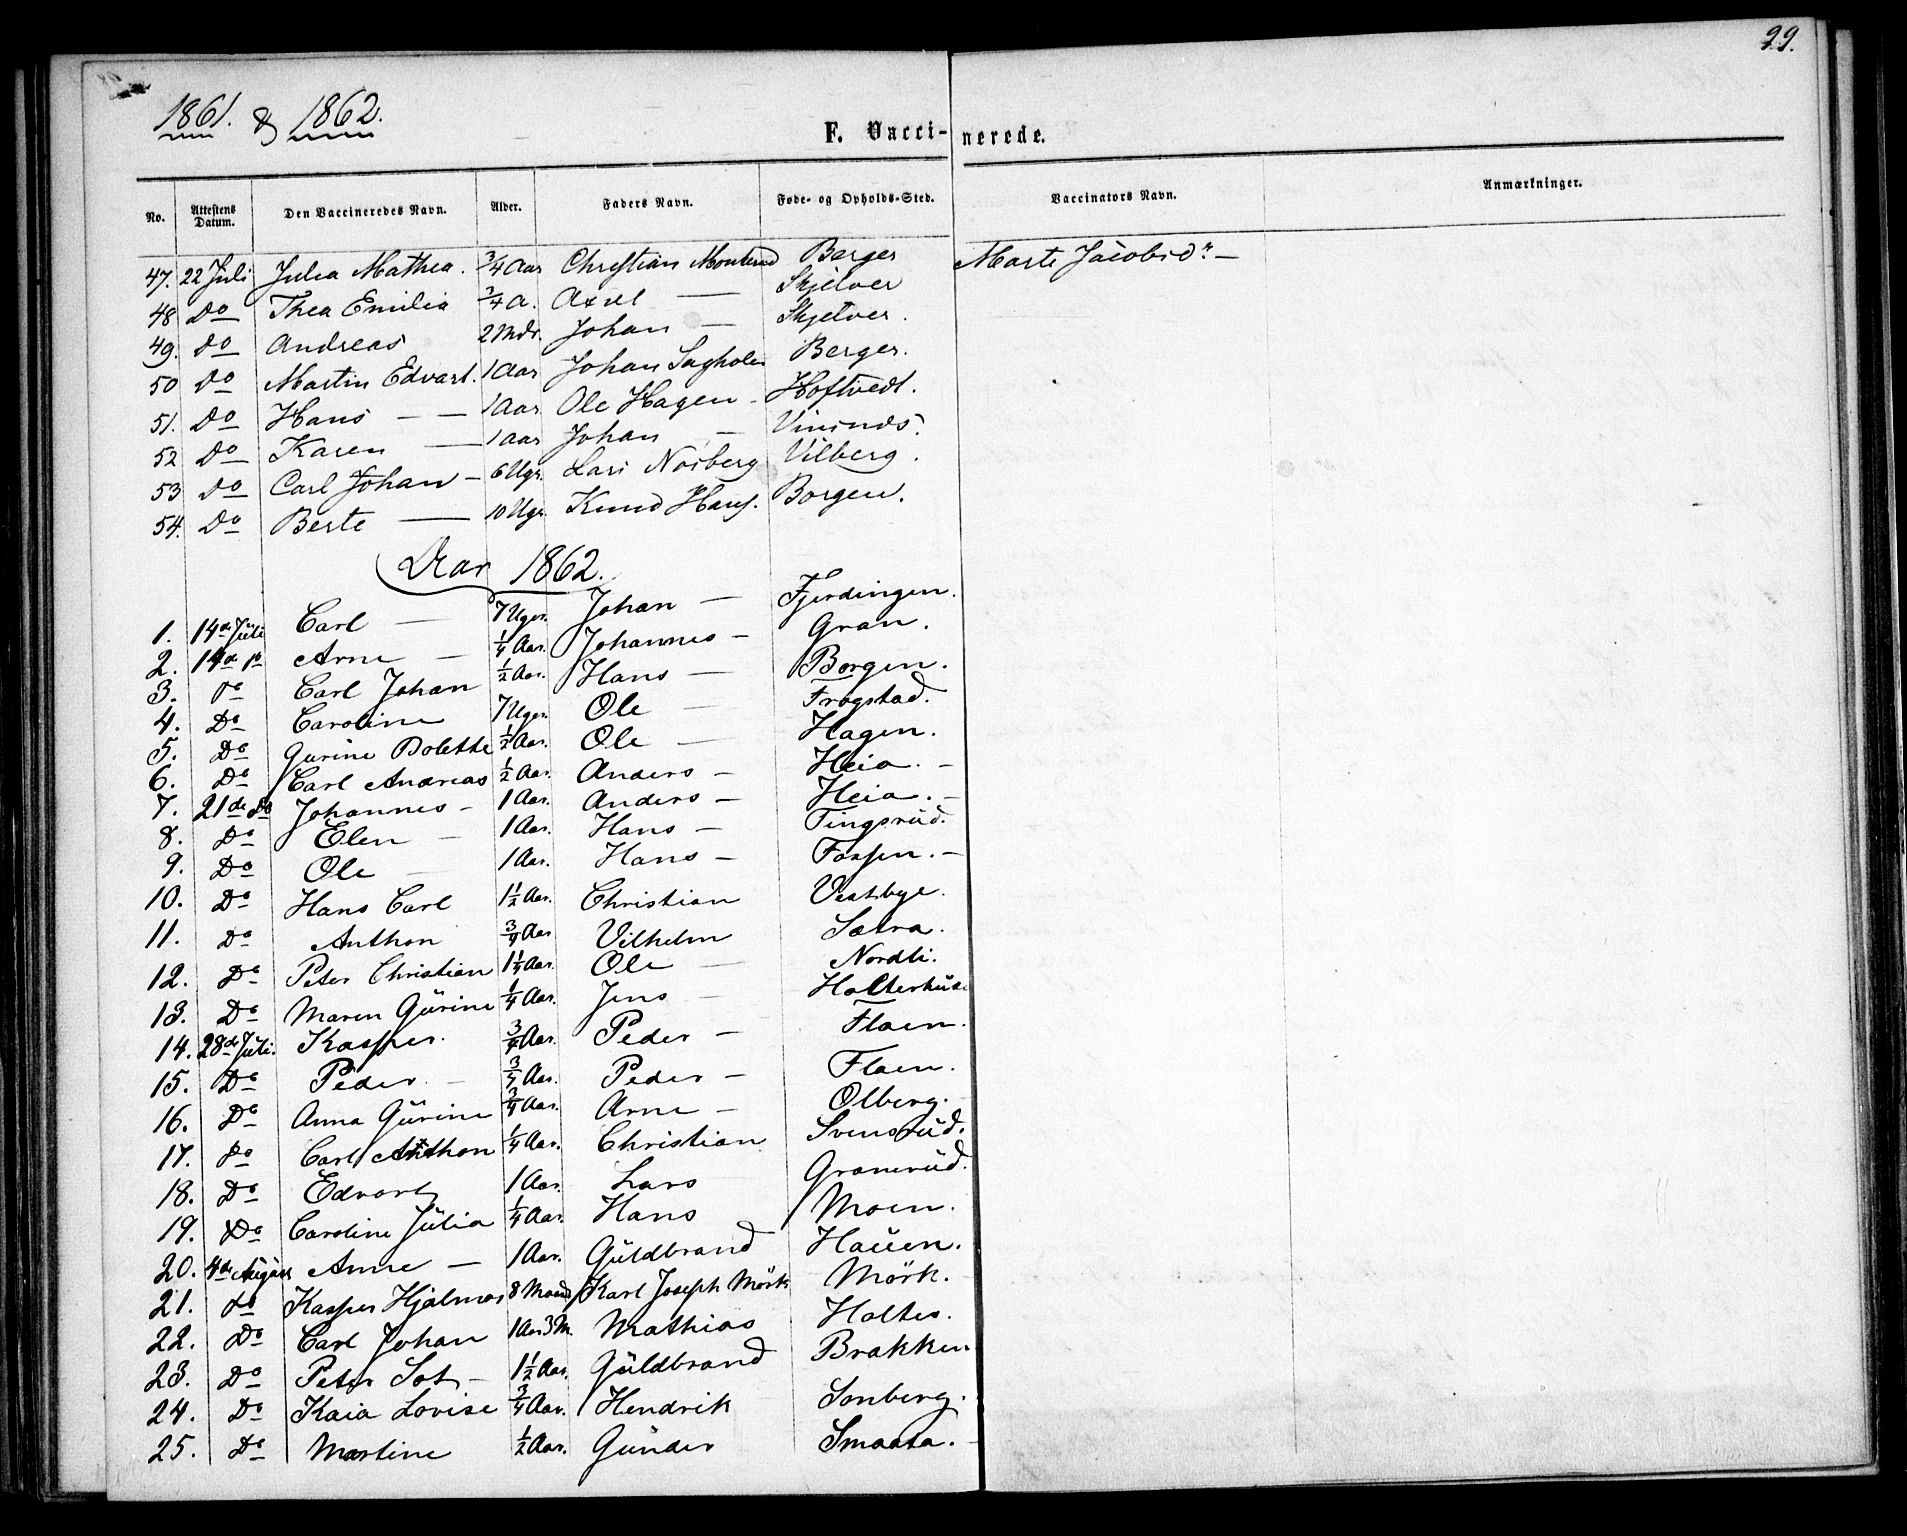 29.
1861. & 1862.
F. Vaccinerede.
No. Attestens Datum. Den Vaccineredes Navn. Alder. Faders Navn. Føde- og Opholds-Sted. Vaccinators Navn. Anmærkninger.
47. 22 Juli Julia Mathea. 3/4 Aar Christian Berger Marte Jacobsd
48 Do Thea Emilia 3/4 A. Axel — Skjelver
49. Do Andreas 2 Mdr. Johan — Skjelver.
50 Do Martin Edvart. 1 Aar Johan Sagholen Berger.
51. Do Hans — — 1 Aar Ole Hagen - Hoftvedt.
52 Do Karen — 1 Aar Johan —
53 Do Carl Johan - 6 Ugr. Lars Noiberg Vilberg.
54. Do Berte — 10 Ugr. Knud Hans. Borgen.
Aar 1862.
1. 14de Juli Carl — 7 Uger. Johan — Fjerdingen.
2. 14de Do Arne — 1/4 Aar. Johannes - Gran.
3. Do Carl Johan 1/2 Aar. Hans — Borgen.
4. Do Caroline 7 Uger. Ole — Frogstad.
5. Do Gurine Bolette 1/2 Aar. Ole — Hagen.
6. Do Carl Andreas 1/2 Aar. Anders - Heia. -
7. 21de Do Johannes - 1 Aar. Anders - Heia. -
8. Do Elen — 1 Aar. Hans - Tingsrüd.
9. Do Ole — 1 Aar. Hans - Fossen. -
10. Do Hans Carl 1 1/2 Aar. Christian Vestbye.
11. Do Anthon 3/4 Aar Vilhelm Sætra.
12. Do Peter Christian 1 1/4 Aar. Ole — Nordli.
13. Do Maren Gürine 1/4 Aar. Jens - Holterhüset
14. 28de Juli. Kasper. 3/4 Aar. Peder - Floen.
15. Do Peder. - 3/4 Aar. Peder - Floen.
16. Do Anna Gürine 3/4 Aar. Arne - Olberg.
17. Do Carl Anthon 1/4 Aar. Christian Svensrüd.
18. Do Edvart 1 Aar. Lars Gransrüd.
19. Do Caroline Jülia 1/4 Aar. Hans Moen.
20. 4de August Anne - 1 Aar. Güldbrand Haüen.
21. Do Kasper Hjalmar 8 Maan Karl Joseph Mörk Mörk.
22. Do Carl Johan 1 Aar 3 M. Mathias Holter.
23. Do Peter - 1 1/2 Aar. Güldbrand Brakken
24. Do Kaia Lovise 3/4 Aar. Hendrik Sonberg.
25. Do Martine 1/2 Aar. Günder Smaata.